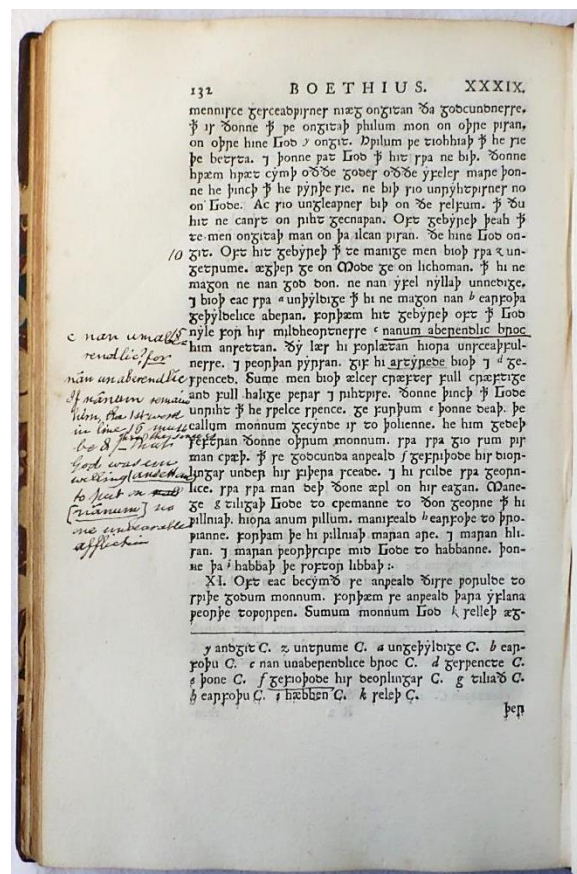 132 BOETHIUS. XXXIX.
mennisce gesceadƿisnes mæg ongitan ða godcundnesse.
ꝥ is ðonne ꝥ ƿe ongitaþ hƿilum mon on oþre ƿisan.
on oþre hine God y ongit. Hƿilum ƿe tiohhiaþ ꝥ he sie
se betsta. ⁊ þonne ƿat God ꝥ hit sƿa ne biþ. ðonne
hƿæm hƿæt cymþ oððe godes oððe yfeles mare þon-
ne he þincþ ꝥ he ƿyrþe sie. ne biþ sio unryhtƿisnes no
on Gode. Ac sio ungleaƿnes biþ on ðe selfum. ꝥ ðu
hit ne canst on riht gecnaƿan. Oft gebyreþ þeah ꝥ
te men ongitaþ man on þa ilcan ƿisan. ðe hine God on-
10 git. Oft hit gebyreþ ꝥ te manige men bioþ sƿa z un-
getrume. ægþer ge on Mode ge on lichoman. ꝥ hi ne
magon ne nan god don. ne nan yfel nyllaþ unnedige.
⁊ bioþ eac sƿa a unþyldige ꝥ hi ne magon nan b earfoþa
geþyldelice aberan. forþæm hit gebyreþ oft ꝥ God
15 nyle for his mildheortnesse c nanum aberendlic broc
him ansettan. ðy læs hi forlætan hiora unsceaþful-
nesse. ⁊ ƿeorþan ƿyrsan. gif hi astyrede bioþ ⁊ d ge-
sƿenced. Sume men bioþ ælces cræftes full cræftige
and full halige ƿeras ⁊ rihtƿise. ðonne þincþ ꝥ Gode
unriht ꝥ he sƿelce sƿence. ge furþum e þonne deaþ. þe
eallum monnum gecynde is to þolienne. he him gedeþ
seftran ðonne oþrum monnum. sƿa sƿa gio sum ƿis
man cƿæþ. ꝥ se godcunda anƿeald f gefriþode his dior-
lingas under his fiþera sceade. ⁊ hi scilde sƿa georn-
lice. sƿa sƿa man deþ ðone æpl on his eagan. Mane-
ge g tiligaþ Gode to cƿemanne to ðon georne ꝥ hi
ƿillniaþ. hiora anum ƿillum. manifeald h earfoþe to þro-
ƿianne. forþam þe hi ƿillniaþ maran are. ⁊ maran hli-
san. ⁊ maran ƿeorþscipe mid Gode to habbanne. þon-
ne þa i habbaþ þe softor libbaþ :.
XI. Oft eac becymð se anƿeald ðisse ƿorulde to
sƿiþe godum monnum. forþæm se anƿeald þara yflana
ƿeorþe toƿorpen. Sumum monnum God k selleþ æg-
y andgit C. z untrume C. a ungeþyldige C. b ear-
foþu C. c nan unaberendlice broc C. d gesƿencte C.
e þone C. f gefrioþode his deorlingas C. g tiliað C.
h earfoþu C. i hæbben C. k seleþ C.
þer
c nan unabe-
rendlic? for
nān unaberendlic
If nānum remains
him, the 1st word
in line 16 must
be &
God was un
willing (ansettan)
to put on
[nānum] no
one unbearable
affliction